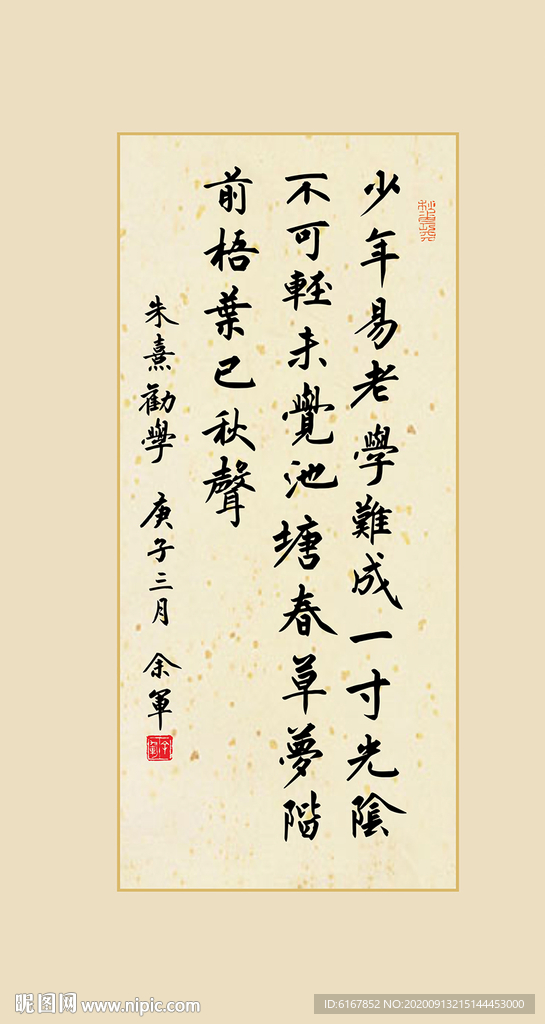 少年易老學難成一寸光陰
不可輕未覺池塘春草夢階
前梧葉已秋聲
朱熹勸學 庚子三月 余軍
昵图网 www.nipic.com
ID:6167852 NO:20200913215144453000